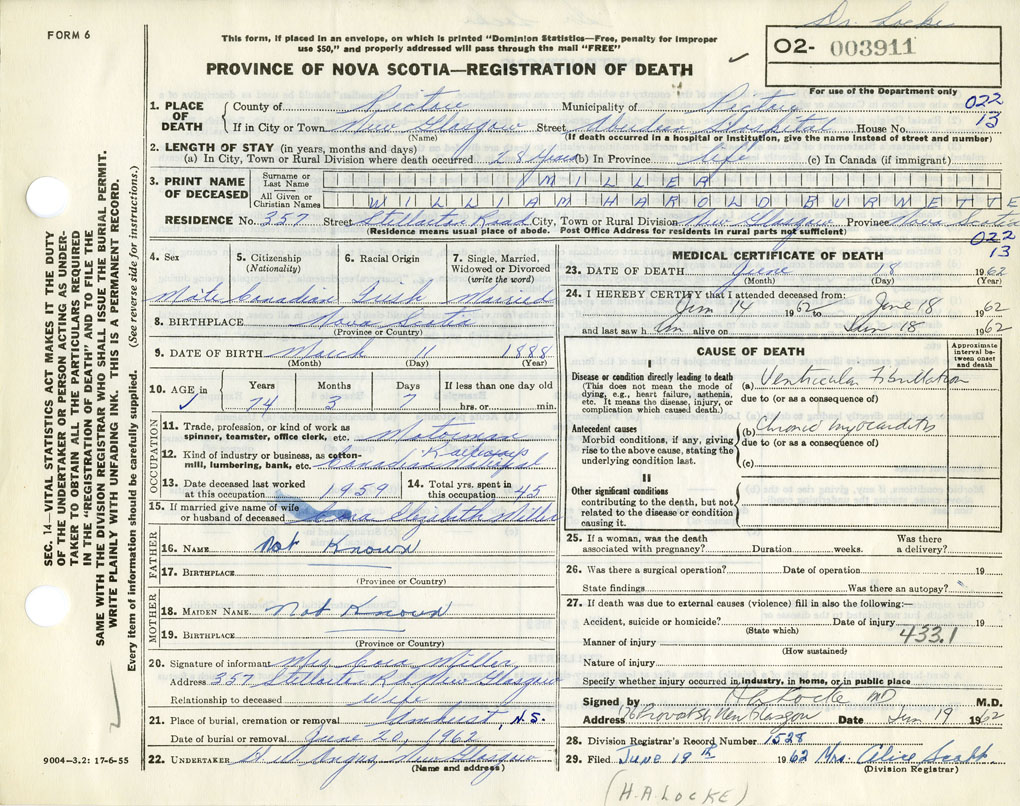 Dr. Locke
FORM 6
This form, if placed in an envelope, on which is printed "Dominion Statistics—Free, penalty for improper
use $50," and properly addressed will pass through the mail "FREE"
PROVINCE OF NOVA SCOTIA—REGISTRATION OF DEATH
02- 003911
For use of the Department only
022
13
1. PLACE OF DEATH
County of Pictou Municipality of Pictou
If in City or Town New Glasgow Street Aberdeen Hospital House No.
(Name) (If death occurred in a hospital or institution, give the name instead of street and number)
2. LENGTH OF STAY (in years, months and days)
(a) In City, Town or Rural Division where death occurred 28 Years (b) In Province life (c) In Canada (if immigrant)
3. PRINT NAME OF DECEASED
Surname or Last Name MILLER
All Given or Christian Names WILLIAM HAROLD BURNETTE
RESIDENCE No. 357 Street Stellarton Road City, Town or Rural Division New Glasgow Province Nova Scotia
(Residence means usual place of abode. Post Office Address for residents in rural parts not sufficient)
022
13
4. Sex
5. Citizenship (Nationality)
6. Racial Origin
7. Single, Married, Widowed or Divorced (write the word)
Male Canadian Irish Married
8. BIRTHPLACE Nova Scotia
(Province or Country)
9. DATE OF BIRTH March 11 1888
(Month) (Day) (Year)
10. AGE in Years Months Days If less than one day old
74 3 7 hrs. or min.
OCCUPATION
11. Trade, profession, or kind of work as
spinner, teamster, office clerk, etc. Motorman
12. Kind of industry or business, as cotton-
mill, lumbering, bank, etc. Canadian National Railways
13. Date deceased last worked
at this occupation 1959
14. Total yrs. spent in
this occupation 45
15. If married give name of wife
or husband of deceased Cora Elizabeth Miller
FATHER
16. NAME Not Known
17. BIRTHPLACE
(Province or Country)
MOTHER
18. MAIDEN NAME Not Known
19. BIRTHPLACE
(Province or Country)
20. Signature of informant Mrs Cora Miller
Address 357 Stellarton Rd New Glasgow
Relationship to deceased wife
21. Place of burial, cremation or removal Amherst, N.S.
Date of burial or removal June 20, 1962
22. UNDERTAKER H W Angus, New Glasgow
(Name and address)
MEDICAL CERTIFICATE OF DEATH
23. DATE OF DEATH June 18 1962
(Month) (Day) (Year)
24. I HEREBY CERTIFY that I attended deceased from:
Jun 14 1962 to June 18 1962
and last saw him alive on Jun 18 1962
CAUSE OF DEATH
Approximate interval between onset and death
I
Disease or condition directly leading to death
(This does not mean the mode of
dying, e.g., heart failure, asthenia,
etc. It means the disease, injury, or
complication which caused death.)
(a) Ventricular Fibrillation
due to (or as a consequence of)
Antecedent causes
Morbid conditions, if any, giving
rise to the above cause, stating the
underlying condition last.
(b) Chronic myocarditis
due to (or as a consequence of)
(c)
II
Other significant conditions
contributing to the death, but not
related to the disease or condition
causing it.
25. If a woman, was the death
associated with pregnancy? Duration weeks. Was there a delivery?
26. Was there a surgical operation? Date of operation 19
State findings Was there an autopsy?
27. If death was due to external causes (violence) fill in also the following:—
Accident, suicide or homicide? Date of injury 19
(State which)
433.1
Manner of injury
(How sustained)
Nature of injury
Specify whether injury occurred in industry, in home, or in public place
Signed by HA Locke MD M.D.
Address Provost St New Glasgow Date Jun 19 1962
28. Division Registrar's Record Number 1528
29. Filed June 19th 1962 Mrs. Alice
(Division Registrar)
(H.A. LOCKE)
SEC. 14—VITAL STATISTICS ACT MAKES IT THE DUTY
OF THE UNDERTAKER OR PERSON ACTING AS UNDER-
TAKER TO OBTAIN ALL THE PARTICULARS REQUIRED
IN THE "REGISTRATION OF DEATH" AND TO FILE THE
SAME WITH THE DIVISION REGISTRAR WHO SHALL ISSUE THE BURIAL PERMIT.
WRITE PLAINLY WITH UNFADING INK. THIS IS A PERMANENT RECORD.
Every item of information should be carefully supplied. (See reverse side for instructions.)
9004-3.2: 17-6-55